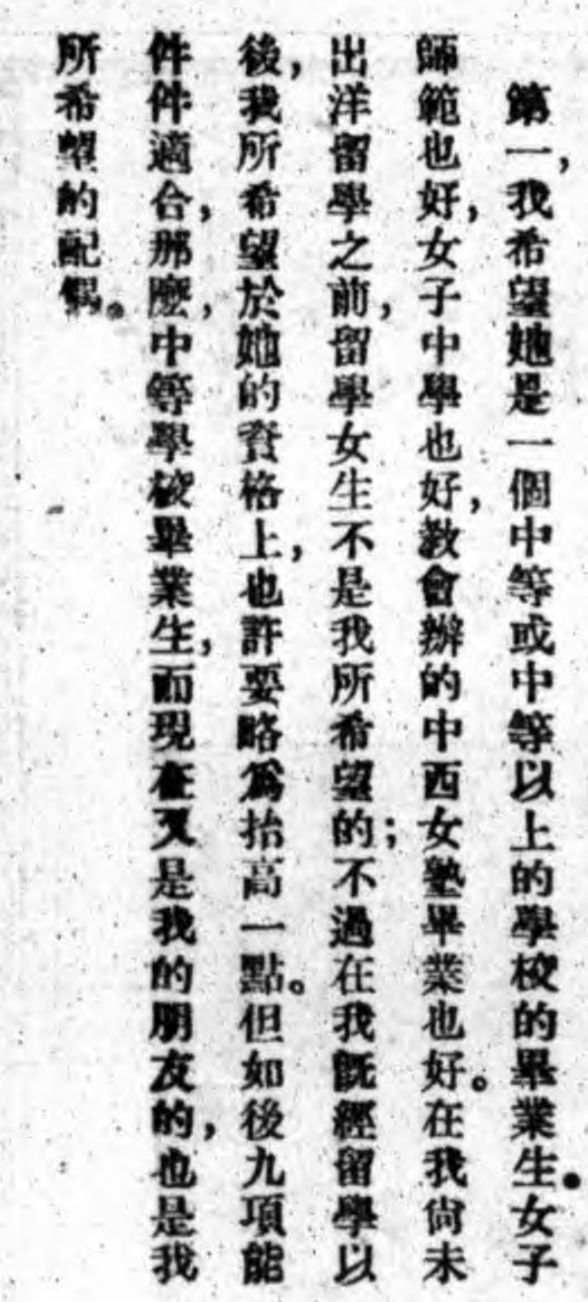 第一,我希望她是一個中等或中等以上的學校的畢業生。女子
師範也好,女子中學也好,教會辦的中西女塾畢業也好。在我尙未
出洋留學之前,留學女生不是我所希望的;不過在我既經留學以
後,我所希望於她的資格上,也許要略爲抬高一點。但如後九項能
件件適合,那麼,中等學校畢業生,而現在又是我的朋友的,也是我
所希望的配偶。